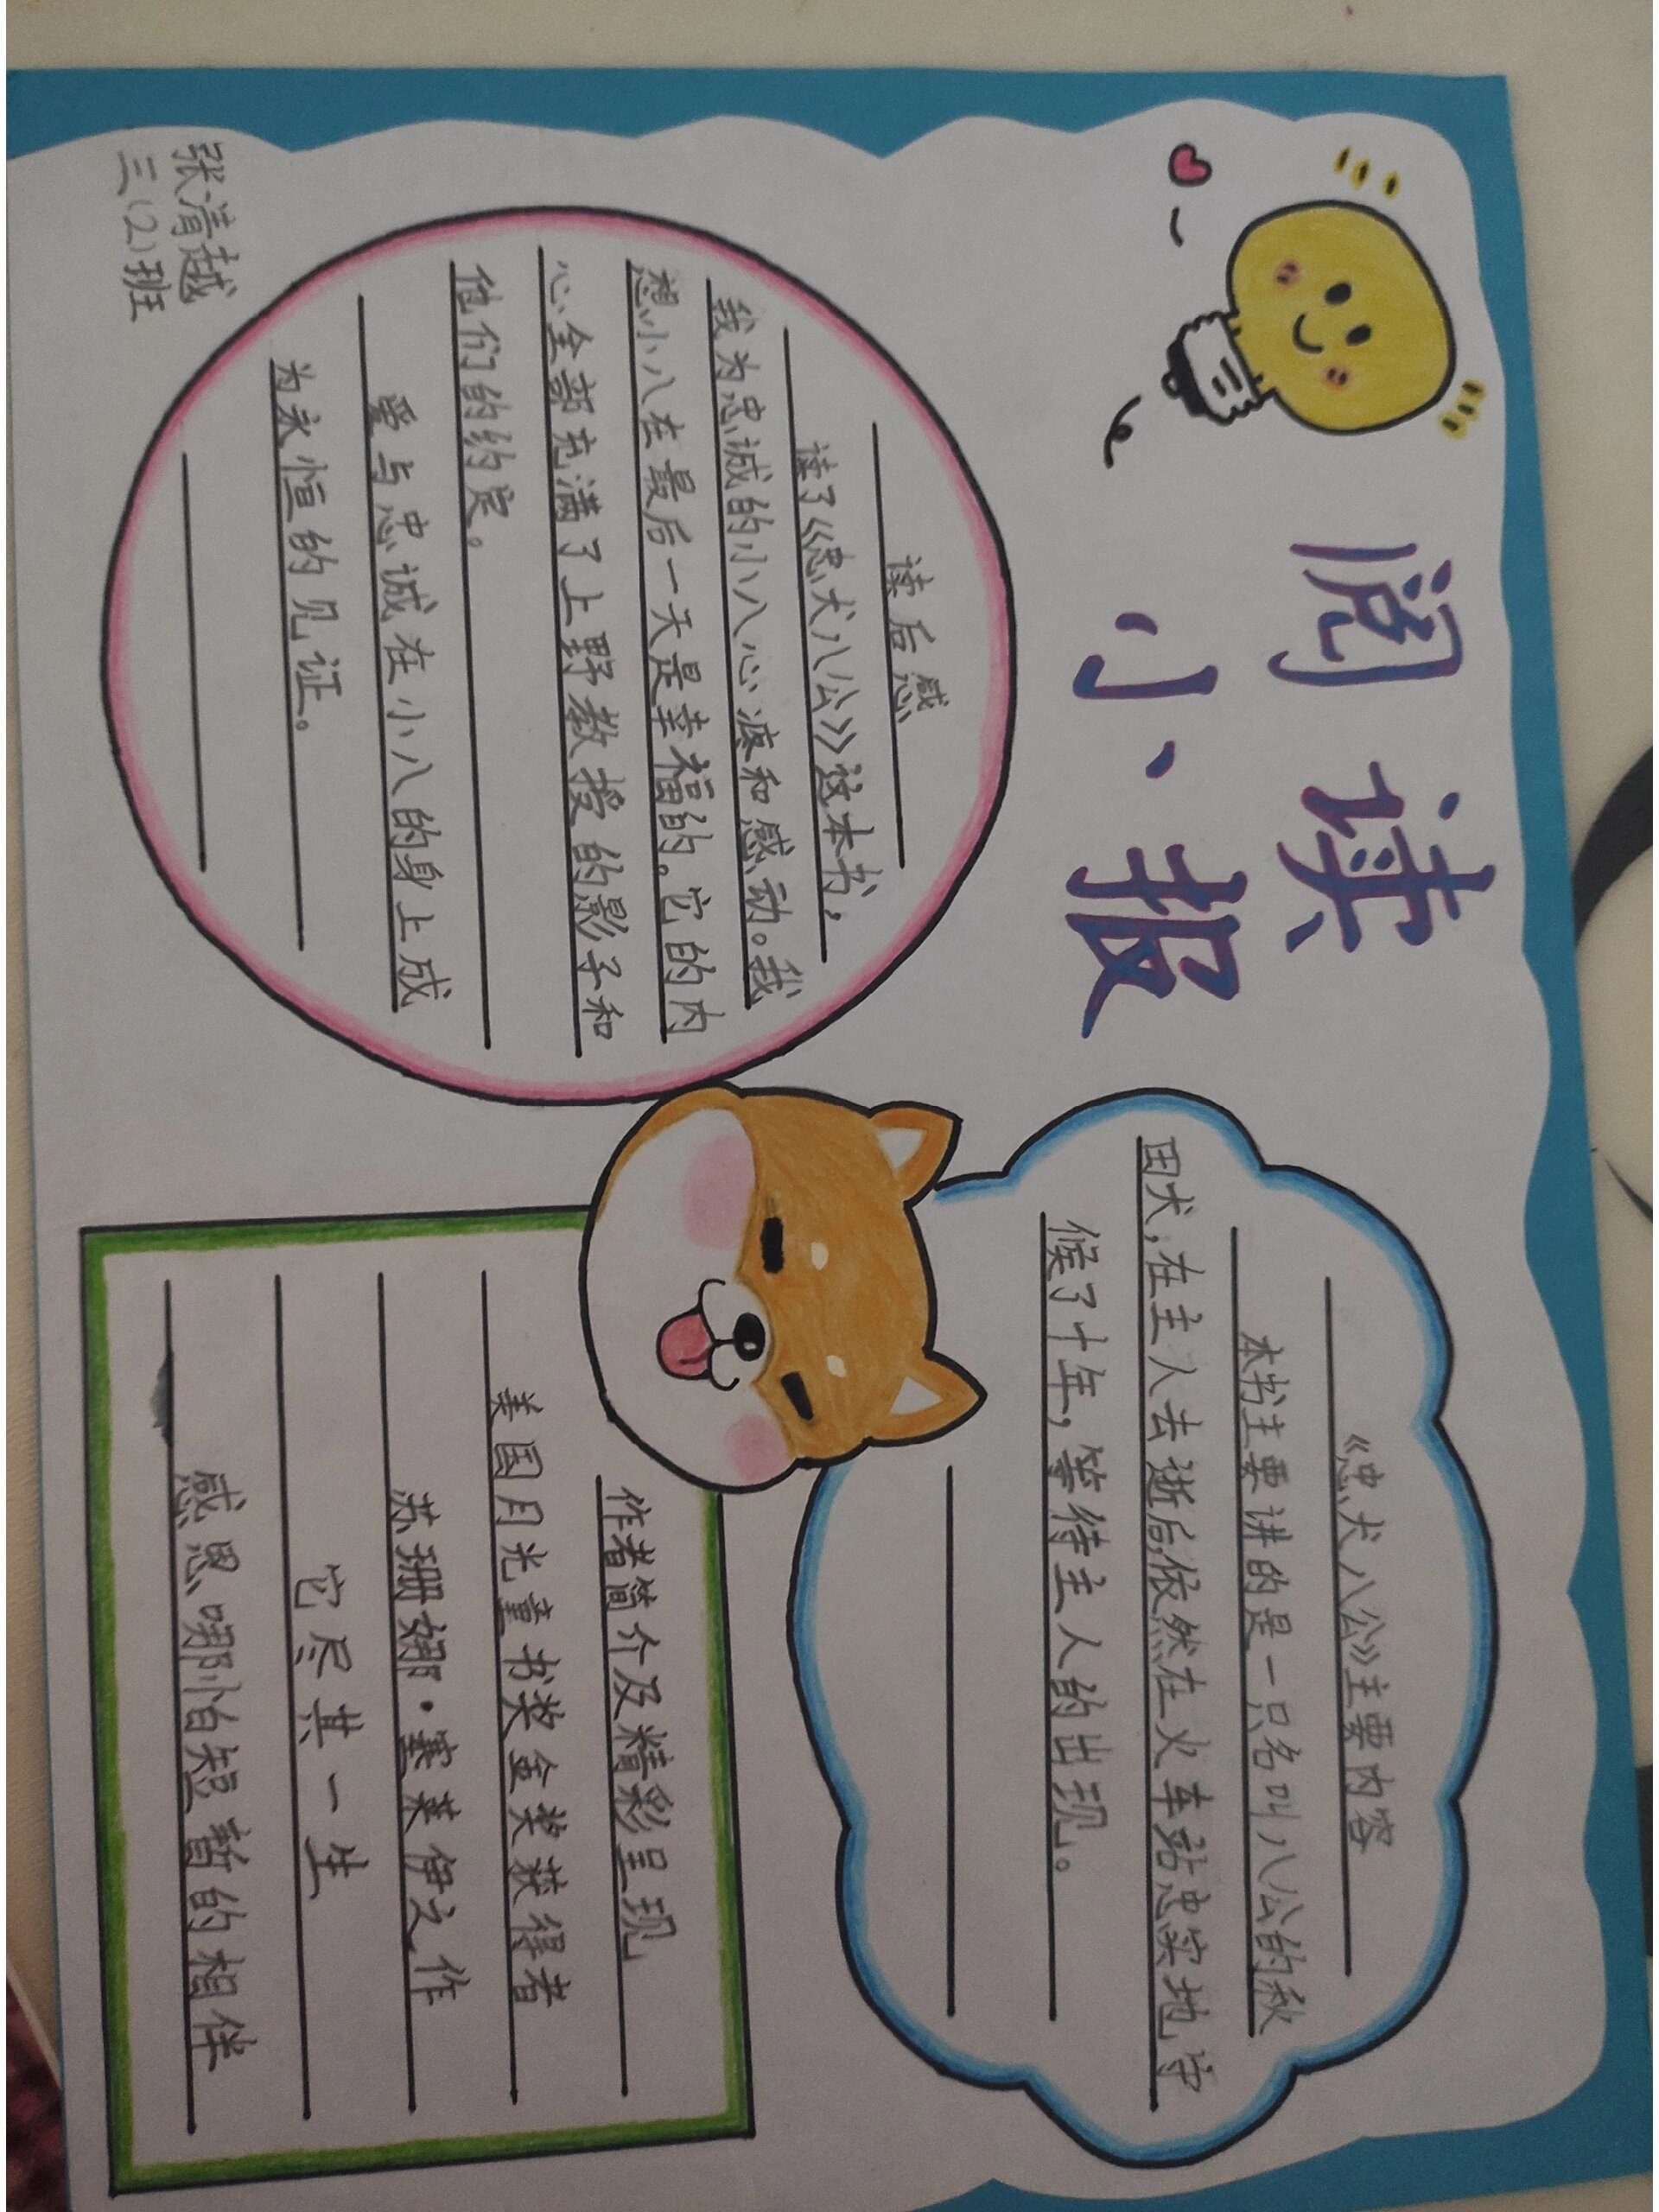 阅读
小报
《忠犬八公》主要内容
本书主要讲的是一只名叫八公的秋
田犬,在主人去逝后依然在火车站忠实地守
候了十年,等待主人的出现。
读后感
读了《忠犬八公》这本书,
我为忠诚的小八心疼和感动。我
想小八在最后一天是幸福的。它的内
心全部充满了上野教授的影子和
他们的约定。
爱与忠诚在小八的身上成
为永恒的见证。
作者简介及精彩呈现
美国月光童书奖金奖获得者
苏珊娜·塞莱伊之作
它尽其一生
感恩哪怕短暂的相伴
张清越
三(2)班